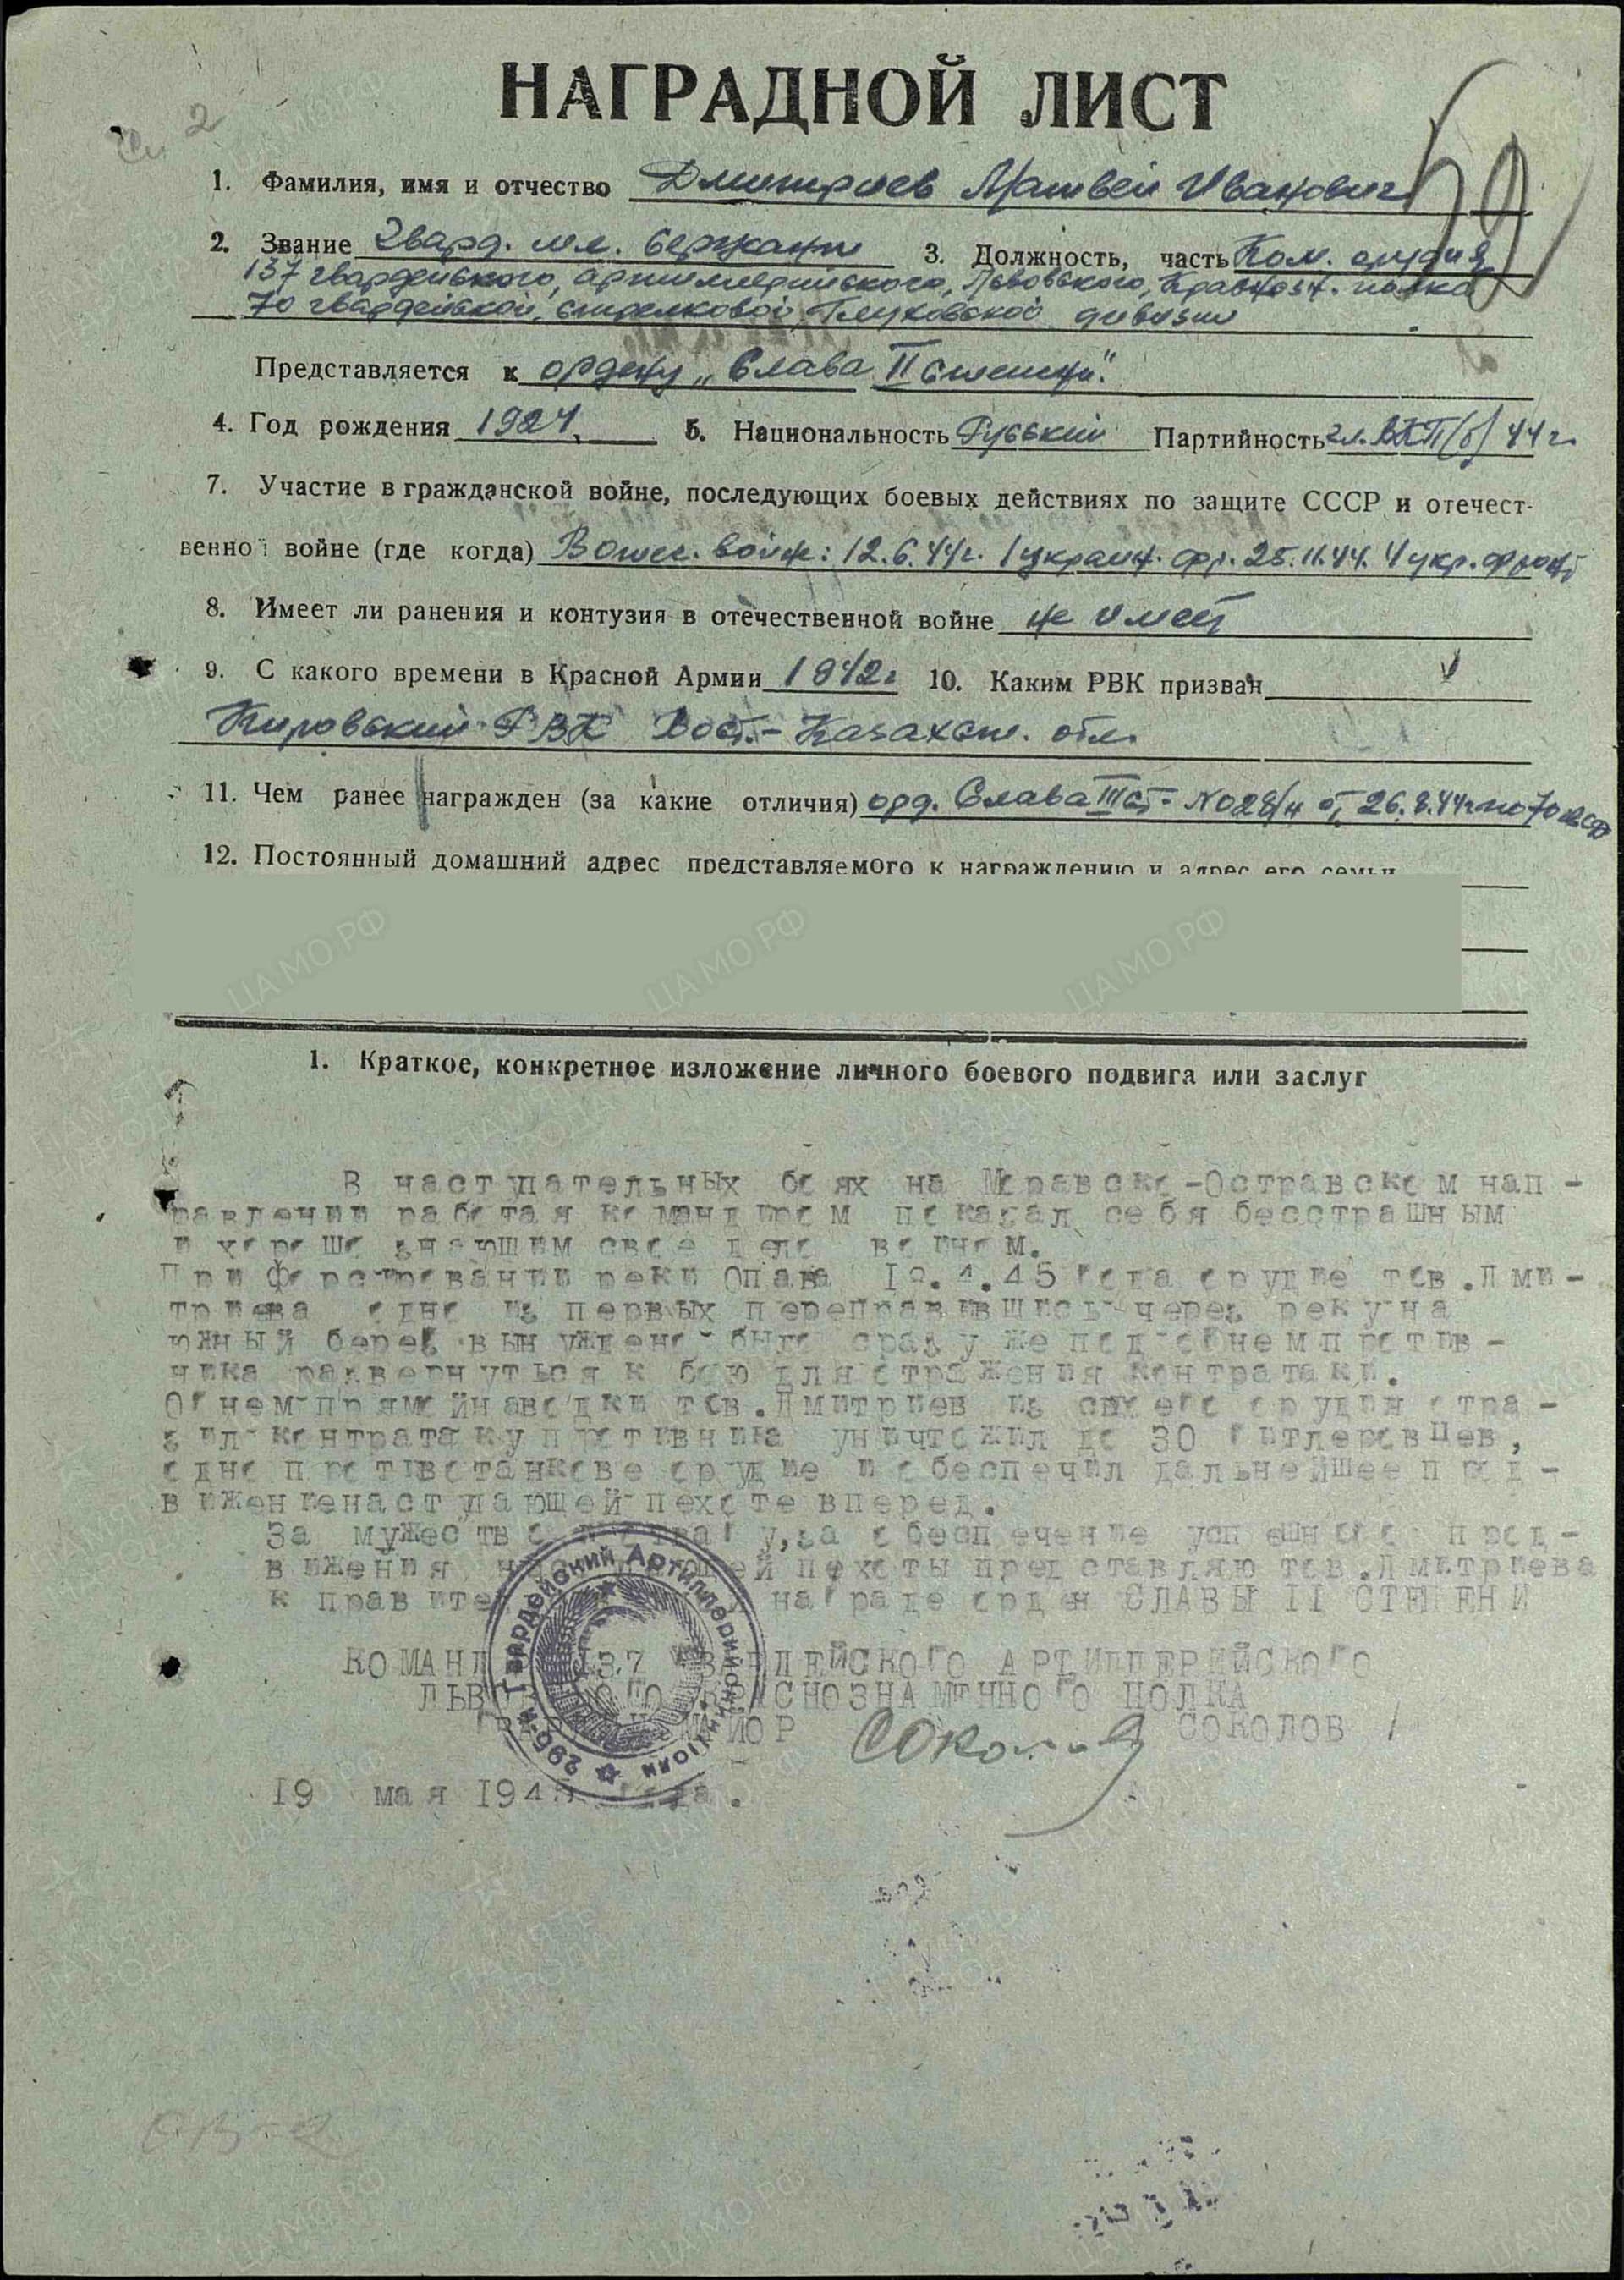 НАГРАДНОЙ ЛИСТ
2
59
1. Фамилия, имя и отчество Дмитриев Матвей Иванович
2. Звание Гвард. мл. сержант 3. Должность, часть Ком. орудия
137 гвардейского, артиллерийского, Львовского, Краснозн. полка
70 гвардейской, стрелковой Глуховской дивизии
Представляется к ордену „Слава II степени".
4. Год рождения 1924 5. Национальность Русский Партийность чл. ВКП(б) 44 г.
7. Участие в гражданской войне, последующих боевых действиях по защите СССР и отечест-
венной войне (где когда) В отеч. войне: 12.6.44г. 1 украин. фр. 25.11.44. 4 укр. фронт
8. Имеет ли ранения и контузия в отечественной войне не имеет
9. С какого времени в Красной Армии 1942г 10. Каким РВК призван
Кировский РВК Вост.-Казахст. обл.
11. Чем ранее награжден (за какие отличия) орд. Слава III ст. №028/н от 26.8.44г по 70 гв сд
12. Постоянный домашний адрес представляемого к награждению и адрес его семьи
1. Краткое, конкретное изложение личного боевого подвига или заслуг
В наступательных боях на Моравско-Остравском нап-
равлении работая командиром показал себя бесстрашным
и хорошо знающим свое дело воином.
При форсировании реки Опава 4.45 года орудие тов.Дми-
триева одно из первых переправившись через реку на
южный берег вынуждено было сразу же под огнем против-
ника развернуться к бою для отражения контратаки.
Огнем прямой наводки тов.Дмитриев из своего орудия отра-
зил контратаку противника уничтожил до 30 гитлеровцев,
одно противотанкове орудие и обеспечил дальнейшее прод-
вижение наступающей пехоте вперед.
За мужество и отвагу,за обеспечение успешного прод-
вижения наступающей пехоты представляю тов.Дмитриева
к правительственной награде орден СЛАВЫ II СТЕПЕНИ
КОМАНДИР 137 ГВАРДЕЙСКОГО АРТИЛЛЕРИЙСКОГО
ЛЬВОВСКОГО КРАСНОЗНАМЕННОГО ПОЛКА
ГВАРДИИ МАЙОР Соколов / СОКОЛОВ /
296-й Гвардейский Артиллерийский полк
19 мая 1945 года.